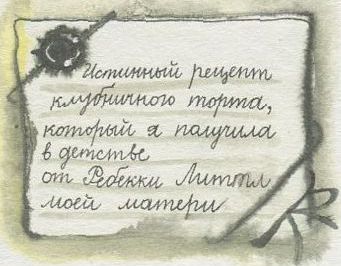 Истинный рецепт
клубничного торта,
который я получила
в детстве
от Ребекки Литтл
моей матери